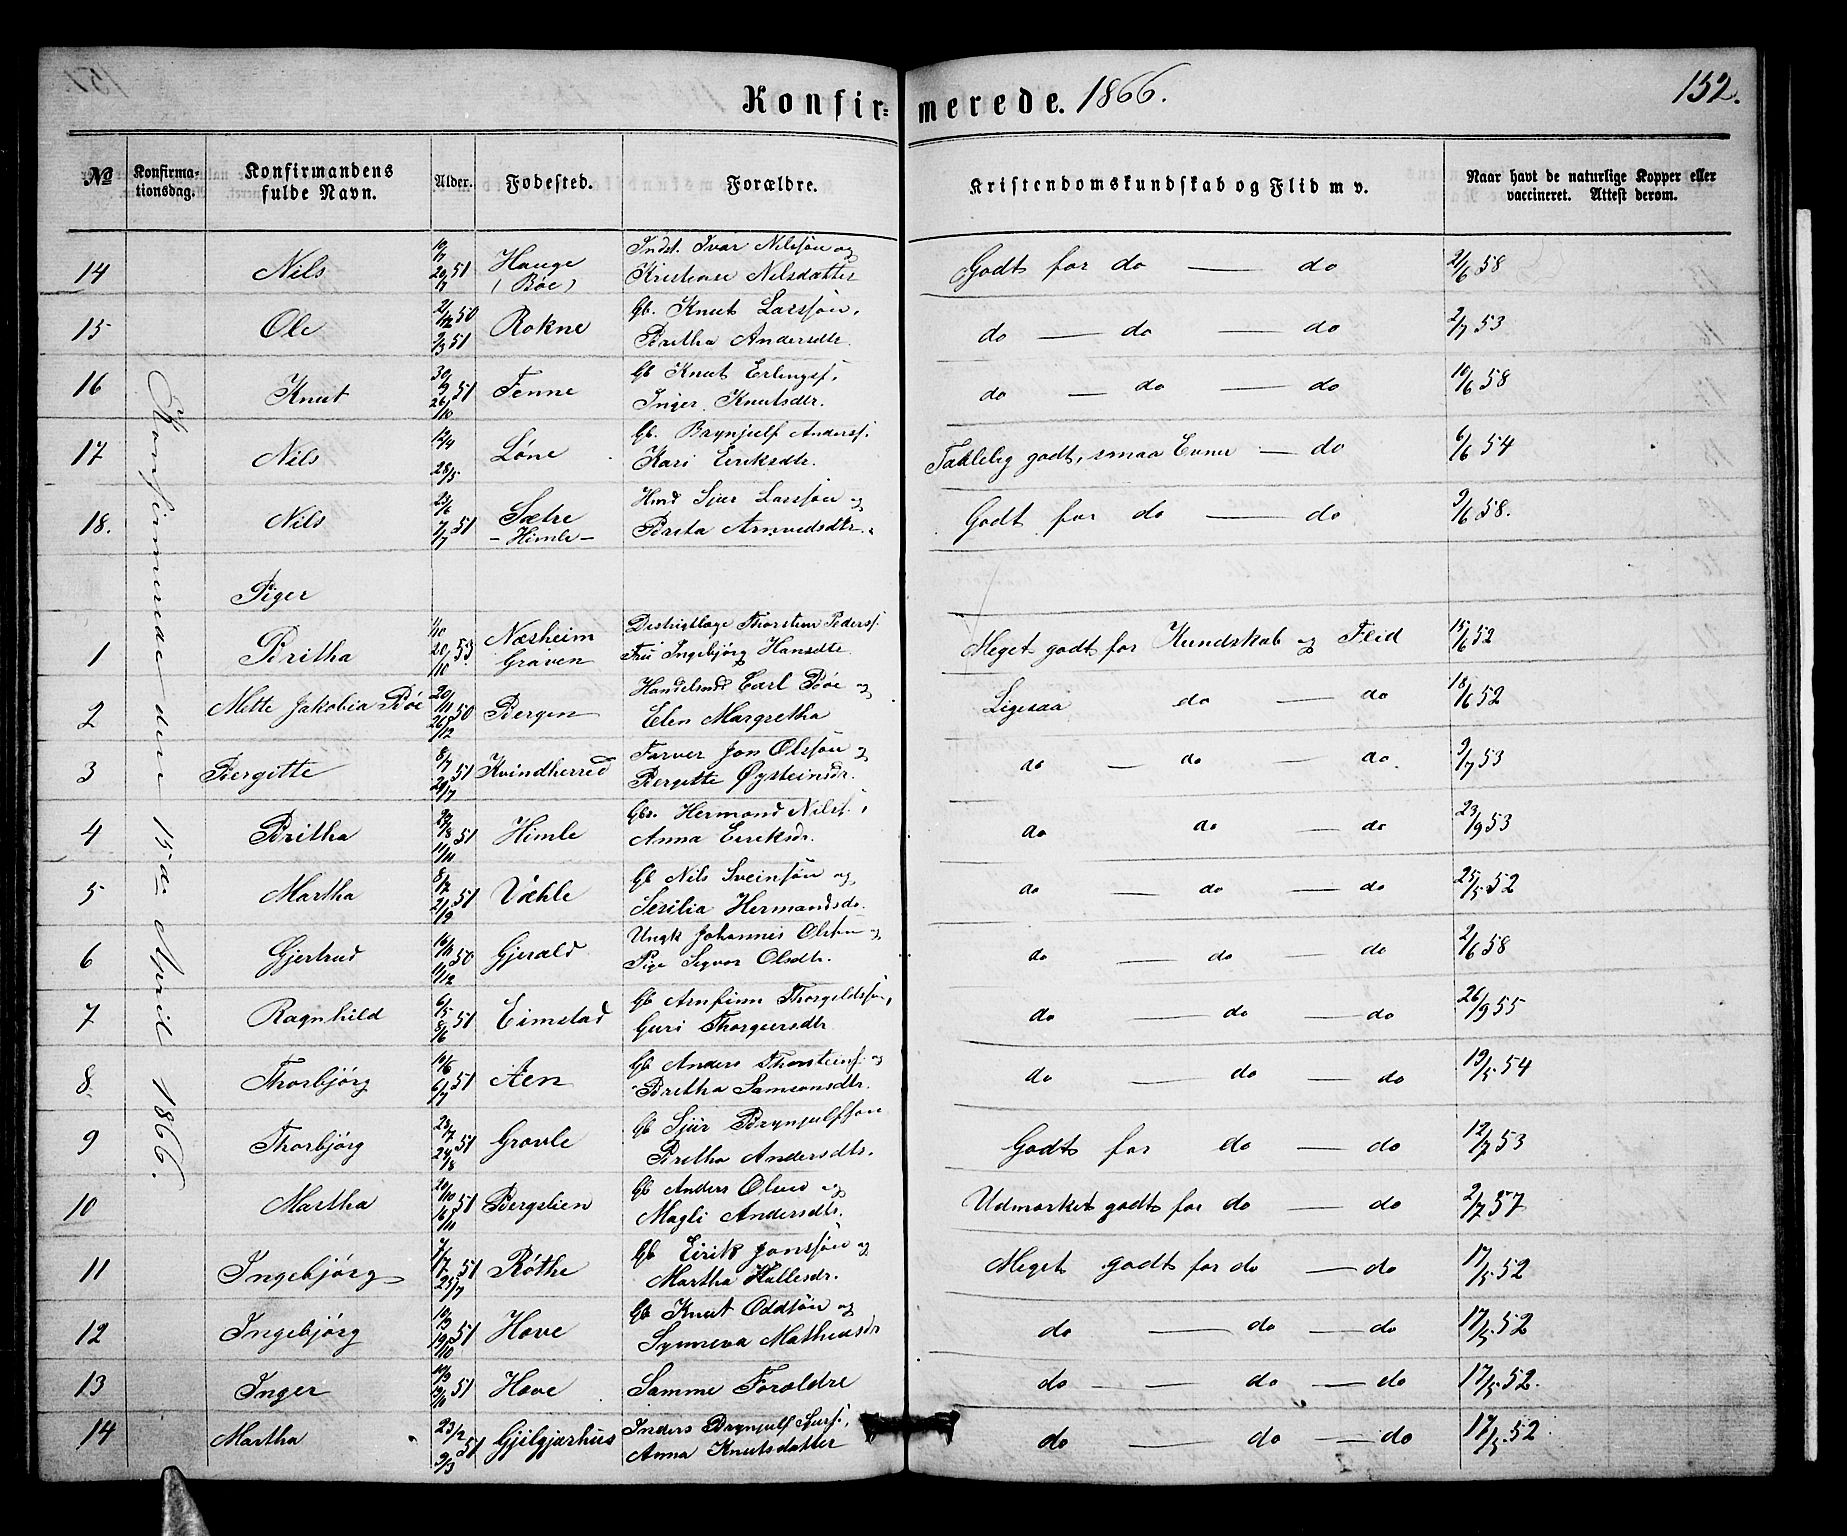 Konfirmerede. 1866. 152.
No Konfirmationsdag. Konfirmandens fulde Navn. Alder. Fødested. Forældre. Kristendomskundskab og Flid m v. Naar havt de naturlige Kopper eller vaccineret. Attest derom.
Konfirmerede den 15de April 1866.
14 Nils 20/7 51 Hauge (Bøe) Indst. Ivar Nilssøn og Kristense Nilsdatter Godt for do — do 2/6 58
15 Ole 50 2/3 51 Rokne Gb. Knut Larssøn, Britha Andersdtr. do — do — do 2/7 53
16 Knut 30/9 51 26/10 Tenne Gb Knut Erlingss, Inger Knutsdtr. do — do — do 10/6 58
17 Nils 12/4 28/5 Løne Gb. Brynjulf Anderss. Kari Eiriksdtr. Taklelig godt, smaa Evner — do 6/6 54
18. Nils 23/6 51 7/7 Sætre - Himle - Hmd Sjur Larssøn og Brita Arnvedsdtr. Godt for do — do 9/6 58.
Piger
1 Britha 1/10 53 20/10 Næsheim Graven Distriktlæge Thorstein Pederss. Fru Ingebjørg Hansdtr Meget godt for Kundskab og Flid 15/6 52
2 Mette Jakobia Bøe 20/11 50 26/12 Bergen Handelsmd Carl Bøe og Elen Margretha Ligesaa do — do 18/6 52
3 Bergitte 8/7 51 20/7 Kvindherred Farver Jon Olssøn og Bergitte Øysteinsdr. do — do — do 9/7 53
4 Britha 51 Himle Gbr. Hermond Nilss, Anna Eiriksdr. do do — do 23/9 53
5 Martha 8/2 51 2/9 Væhle Gb Nils Sveinsøn og Sesilia Hermandsdr. do — do — do 25/5 52
6 Gjertrud 16/11 50 Gjerald Ungk Johannes Olssøn og Pige Sygvor Olsdtr. do — do — do 2/6 58
7 Ragnhild 6/5 51 8/6 Eimstad Gb Arnfinn Thorgeldssøn, Guri Thorgiersdtr do — do — do 26/9 55
8. Thorbjørg 10/6 51 6/7 Aen Gb Anders Thorsteinss. og Britha Samsonsdtr. do — do — do 19/5 54
9 Thorbjørg 23/7 51 24/8 Grovle Gb Sjur Brynjulfson Britha Andersdtr. Godt for do — do 12/7 53
10 Martha 20/10 51 16/11 Bergslien Gb Anders Olsen og Magli Andersdtr. Udmærket godt for do — do 2/7 57
11 Ingebjørg 7/7 51 25/7 Røthe Gb Eirik Jonssøn og Martha Hallesdr. Meget godt for do — do 17/5 52
12 Ingebjørg 10/9 51 19/10 Hove Gb Knut Oddsøn og Synneva Mathiasdr do — do — do 17/5 52
13 Inger 10/9 51 19/10 Hove Samme Forældre do — do — do 17/5 52.
14 Martha 23/2 51 9/3 Gjelgjarhus Inders Brynjulf Sjurs, Anna Knutsdatter do — do — do 17/5 52